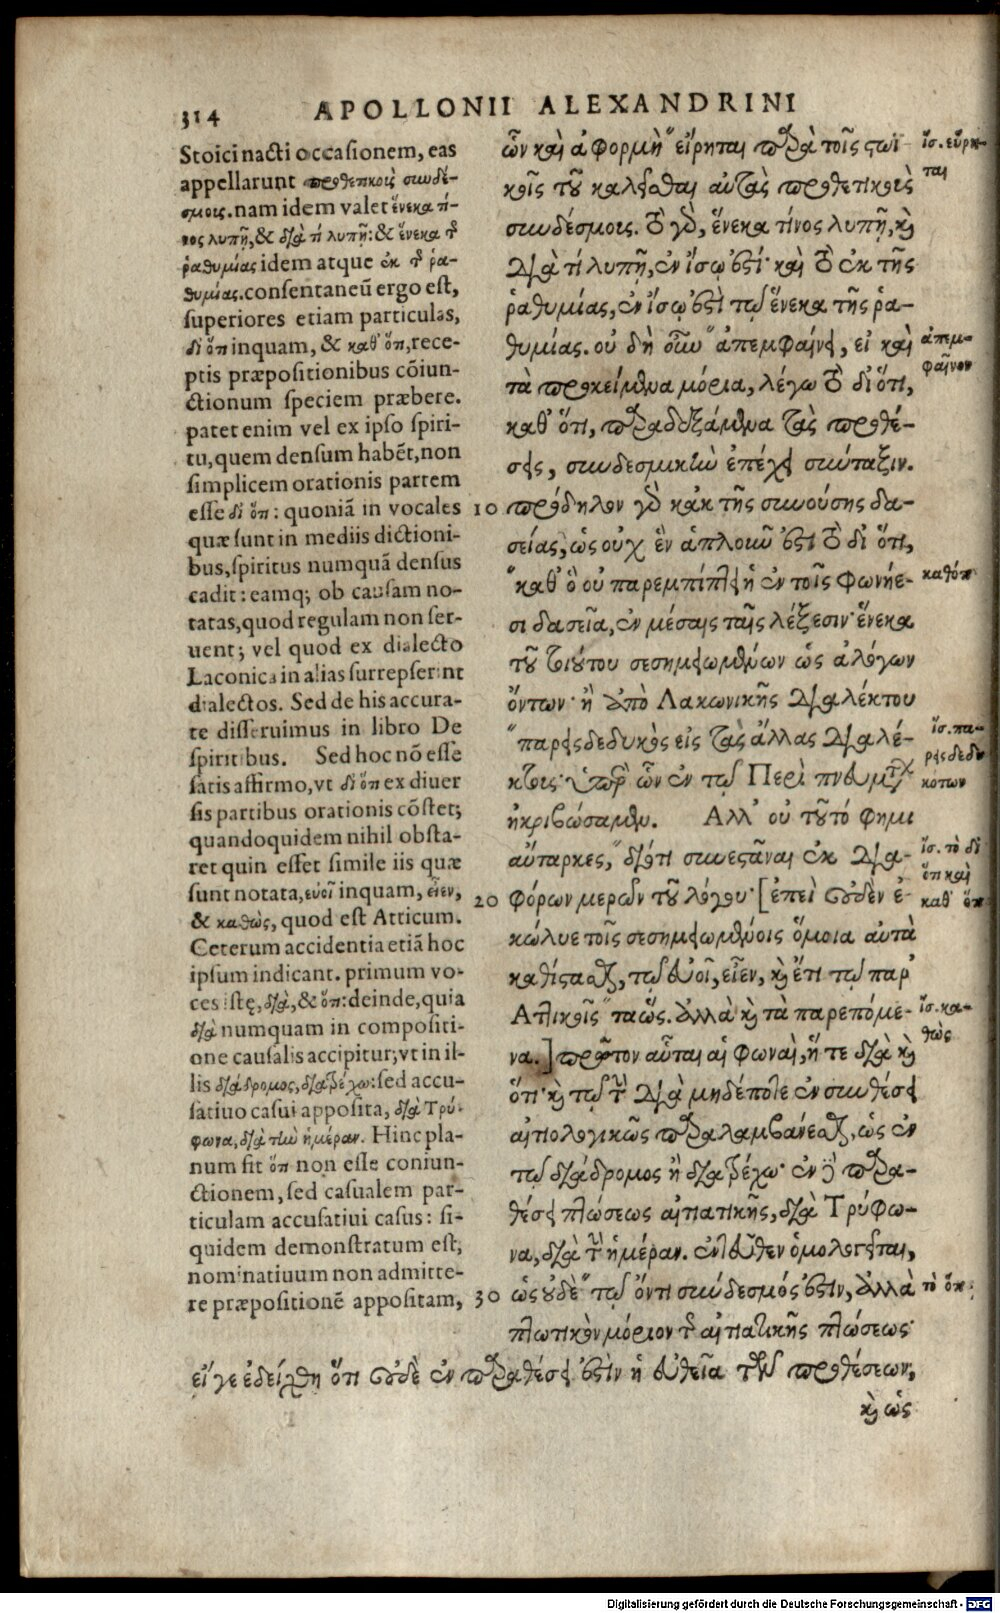 314
APOLLONII ALEXANDRINI
Stoici nacti occasionem, eas
appellarunt προθετικοὺς συνδέ-
σμους. nam idem valet ἕνεκα τί-
νος λυπῇ, & διὰ τί λυπῇ: & ἕνεκα τῆς
ῥαθυμίας idem atque ἐκ τῆς ῥα-
θυμίας. consentaneū ergo est,
superiores etiam particulas,
διότι inquam, & καθ' ὅτι, rece-
ptis præpositionibus cōiun-
ctionum speciem præbere.
patet enim vel ex ipso spiri-
tu, quem densum habēt, non
simplicem orationis partem
esse διότι: quoniā in vocales
quæ sunt in mediis dictioni-
bus, spiritus numquā densus
cadit: eamq; ob causam no-
tatas, quod regulam non ser-
uent; vel quod ex dialecto
Laconica in alias surrepserint
dialectos. Sed de his accura-
te disseruimus in libro De
spiritibus. Sed hoc nō esse
satis affirmo, vt διότι ex diuer
sis partibus orationis cōstet;
quandoquidem nihil obsta-
ret quin esset simile iis quæ
sunt notata, εὐοῖ inquam, εἷεν,
& καθὼς, quod est Atticum.
Ceterum accidentia etiā hoc
ipsum indicant. primum vo-
ces istę, διὰ, & ὅτι: deinde, quia
διὰ numquam in compositi-
one causalis accipitur; vt in il-
lis διάδρομος, διατρέχω: sed accu-
satiuo casui apposita, διὰ Τρύ-
φωνα, διὰ τὴν ἡμέραν. Hinc pla-
num fit ὅτι non esse coniun-
ctionem, sed casualem par-
ticulam accusatiui casus: si-
quidem demonstratum est,
nominatiuum non admitte-
re præpositionē appositam,
ὧν καὶ ἀφορμὴ "εἴρηται παρὰ τοῖς στωϊ
κοῖς τοῦ καλεῖσθαι αὐτὰς προθετικοὺς
συνδέσμους. τὸ γὰρ, ἕνεκα τίνος λυπῇ, καὶ
διὰ τί λυπῇ, ἐν ἴσῳ ἐστί· καὶ τὸ ἐκ τῆς
ῥαθυμίας, ἐν ἴσῳ ἐστὶ τῷ ἕνεκα τῆς ῥα-
θυμίας. οὐ δὴ οὖν "ἀπεμφαίνει, εἰ καὶ
τὰ προκείμενα μόρια, λέγω τὸ διότι,
καθ' ὅτι, παραδεξάμενα τὰς προθέ-
σεις, συνδεσμικὴν ἐπέχει σύνταξιν.
10 πρόδηλον γὰρ κἀκ τῆς συνούσης δα-
σείας, ὡς οὐχ ἓν ἁπλοῦν ἐστι τὸ διότι,
"καθ' ὃ οὐ παρεμπίπτει ἡ ἐν τοῖς φωνήε-
σι δασεῖα, ἐν μέσαις ταῖς λέξεσιν· ἕνεκα
τοῦ τοιούτου σεσημειωμένων ὡς ἀλόγων
ὄντων· ἢ ἀπὸ Λακωνικῆς διαλέκτου
"παρεισδεδυκὸς εἰς τὰς ἄλλας διαλέ-
κτους· ὑπὲρ ὧν ἐν τῷ Περὶ πνευμάτων
ἠκριβώσαμεν. Ἀλλ' οὐ τοῦτό φημι
αὔταρκες, "διότι συνεστάναι ἐκ δια-
20 φόρων μερῶν τοῦ λόγου· [ἐπεὶ οὐδὲν ἐ-
κώλυε τοῖς σεσημειωμένοις ὅμοια αὐτὰ
καθίστασθαι, τῷ εὐοῖ, εἷεν, καὶ ἔτι τῷ παρ'
Ἀττικοῖς "ταώς. ἀλλὰ καὶ τὰ παρεπόμε-
να.] πρῶτον αὗται αἱ φωναὶ, ἥ τε διὰ καὶ
ὅτι· καὶ τῷ τὴν διὰ μηδέποτε ἐν συνθέσει
αἰτιολογικῶς παραλαμβάνεσθαι, ὡς ἐν
τῷ διάδρομος ἢ διατρέχω· ἐν δὲ παρα-
θέσει πτώσεως αἰτιατικῆς, διὰ Τρύφω-
να, διὰ τὴν ἡμέραν. ἐντεῦθεν ὁμολογεῖται,
30 ὡς οὐδὲ "τῷ ὄντι συνδεσμός ἐστιν, ἀλλὰ
πτωτικὸν μόριον τῆς αἰτιατικῆς πτώσεως·
εἴγε ἐδείχθη ὅτι οὐδὲ ἐν παραθέσει ἐστὶν ἡ εὐθεῖα τῶν προθέσεων,
καὶ ὡς
ἴσ. εὕρη-
ται
ἀπεμ-
φαῖνον
καθότι
ἴσ. πα-
ρεισδεδυ
κότων
ἴσ. τὸ δι
ότι καὶ
καθ' ὅτι
ἴσ. κα-
θώς
τὸ ὅτι.
Digitalisierung gefördert durch die Deutsche Forschungsgemeinschaft - DFG